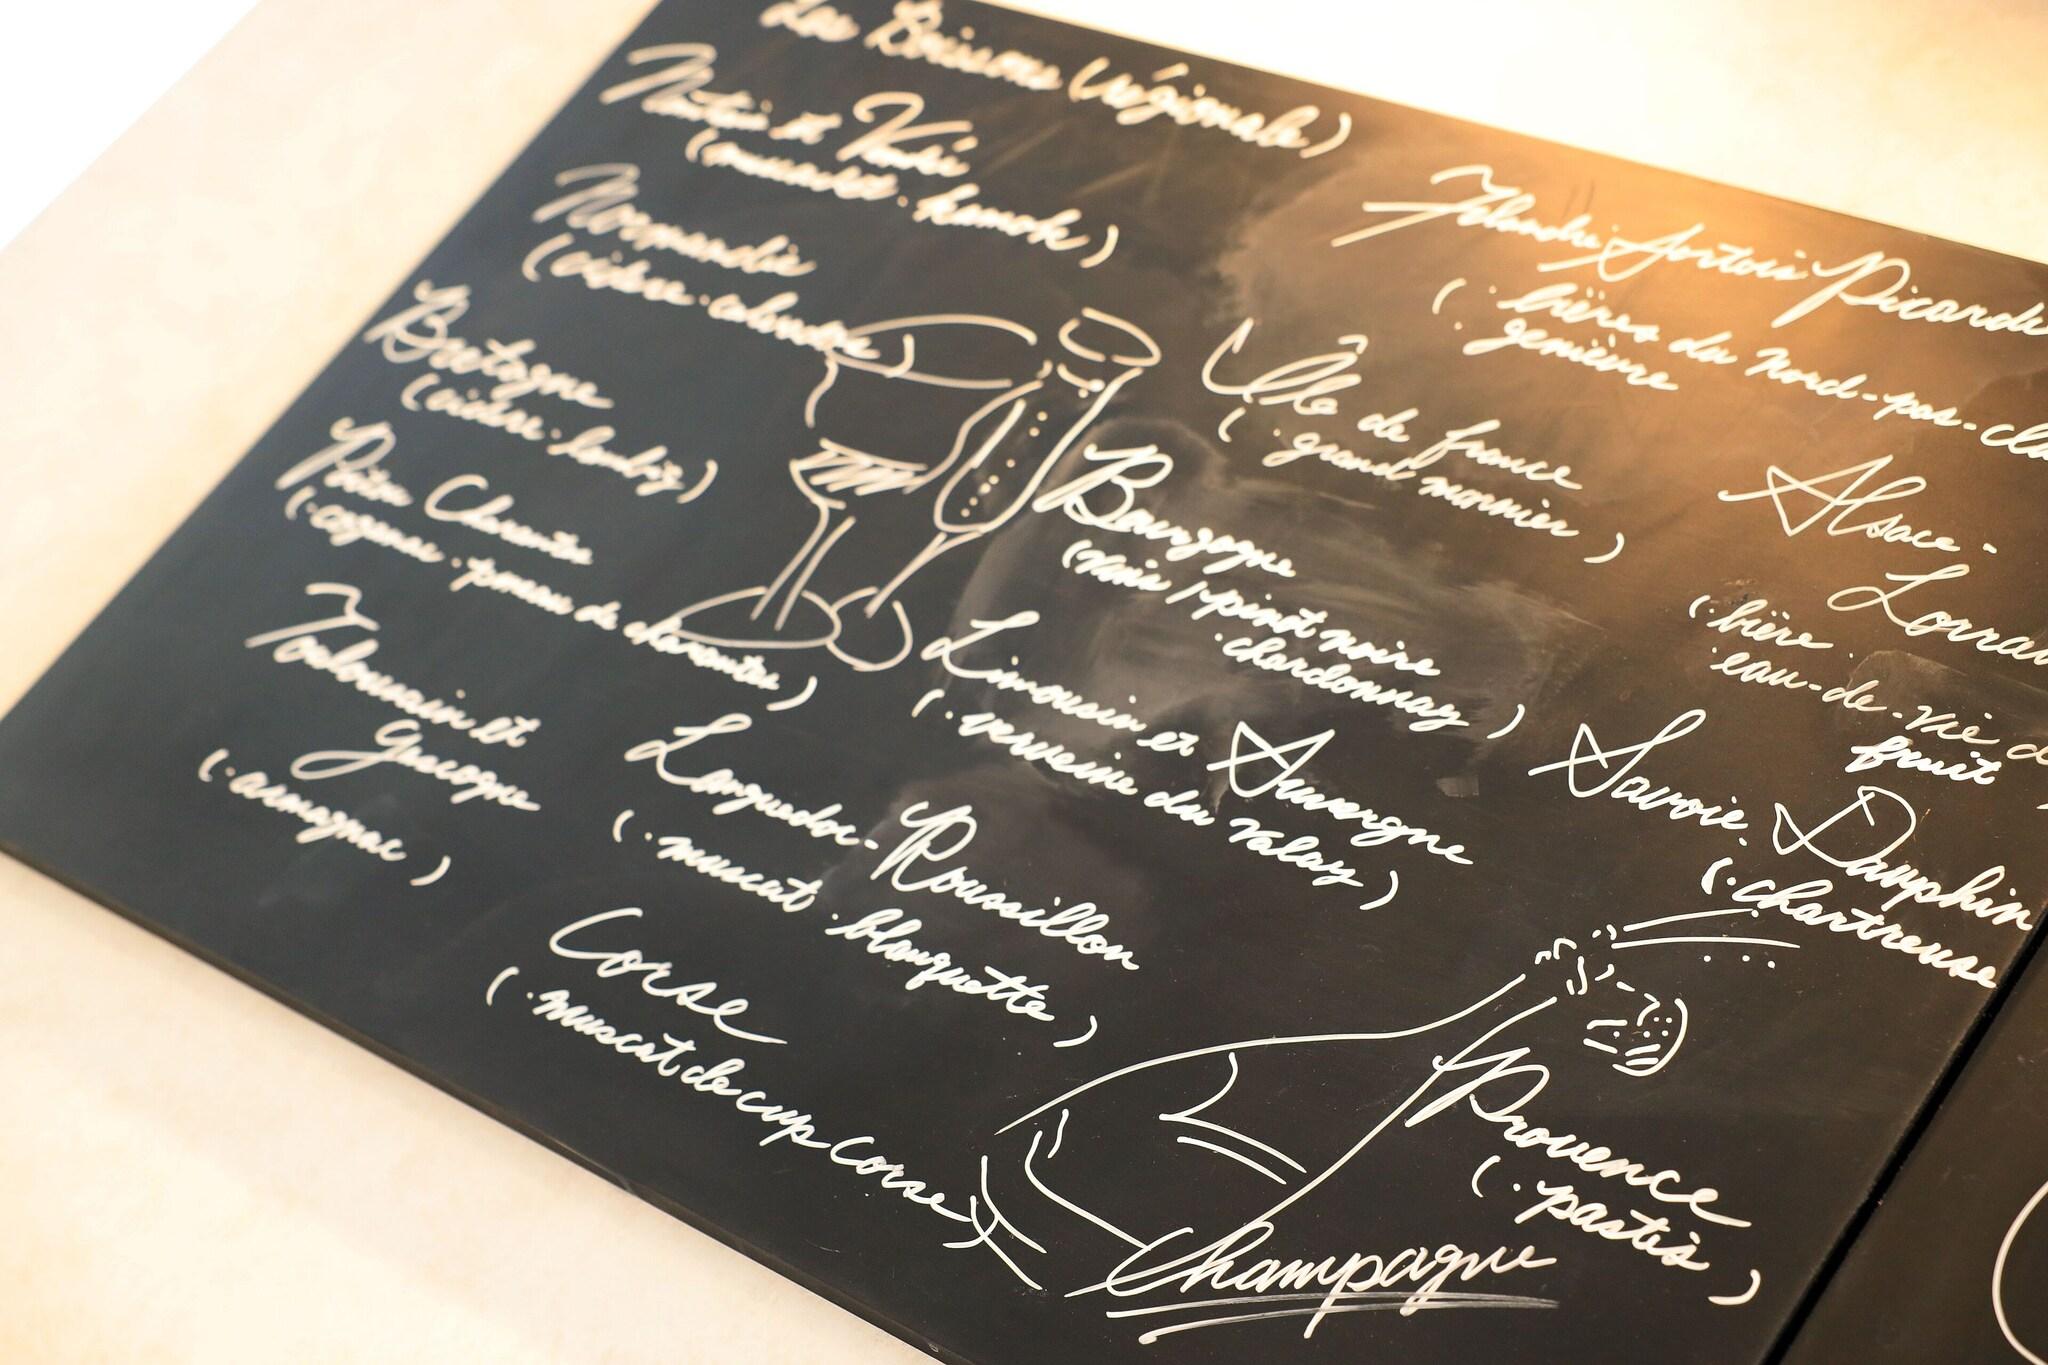 Les Boissons (régionale)
Nantais et Vendée
(muscadet · kamok)
Normandie
(cidre · calvados)
Bretagne
(cidre · lambig)
Poitou Charentes
(· cognac · pineau de charentes)
Toulousain et
Gascogne
(· armagnac)
Flandre · Artois Picardie
(· bières du nord-pas-
· genièvre
Île de france
(· grand marnier)
Bourgogne
(vins / · pinot noire
· chardonnay)
Alsace-
(· bière
· eau-de-vie
fruit
Limousin et Auvergne
(· verveine du Velay)
Savoie · Dauphin
(· chartreuse
Languedoc-Roussillon
(· muscat · blanquette)
Corse
(· muscat de cup Corse)
Provence
(· pastis)
Champagne